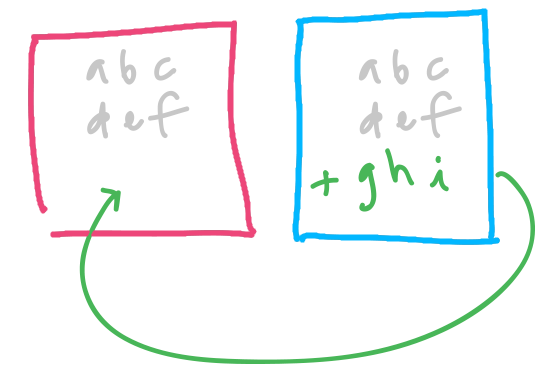 a b c
d e f
a b c
d e f
+ g h i